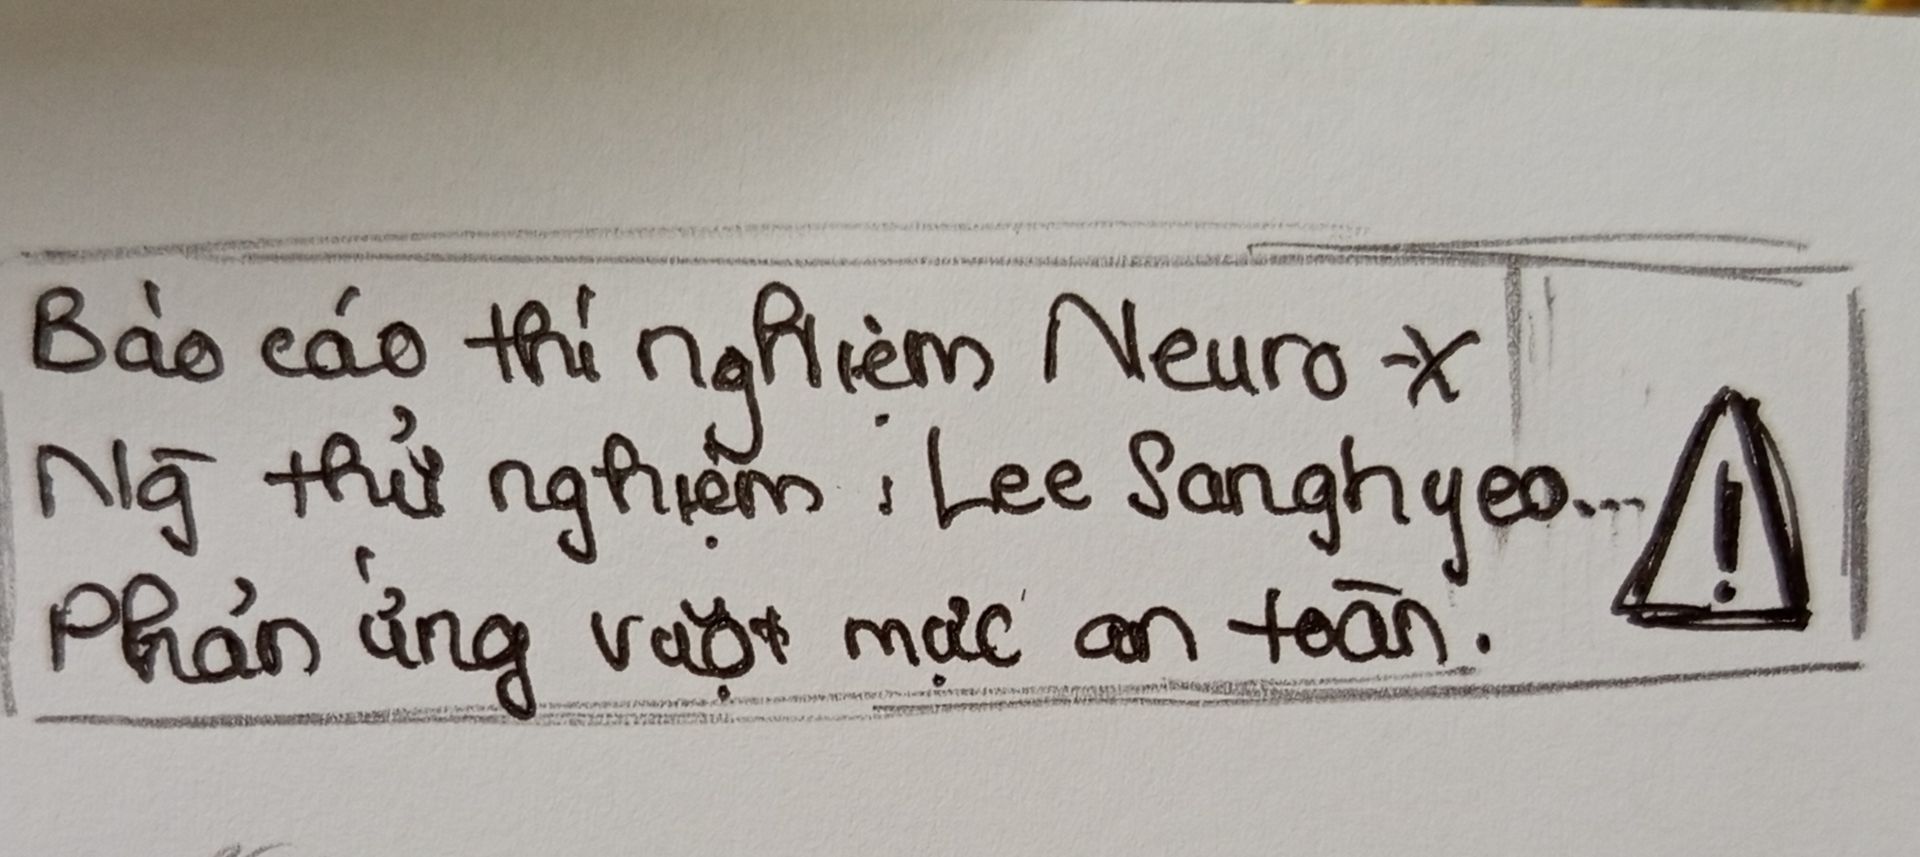 Báo cáo thí nghiệm Neuro-X
Ng̃ thử nghiệm: Lee Sanghyeo...
Phản ứng vượt mức an toàn.